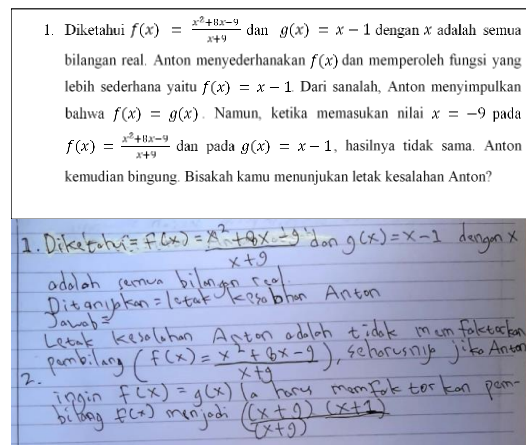 1. Diketahui f(x) = x²+8x−9 / x+9 dan g(x) = x − 1 dengan x adalah semua
bilangan real. Anton menyederhanakan f(x) dan memperoleh fungsi yang
lebih sederhana yaitu f(x) = x − 1. Dari sanalah, Anton menyimpulkan
bahwa f(x) = g(x). Namun, ketika memasukan nilai x = −9 pada
f(x) = x²+8x−9 / x+9 dan pada g(x) = x − 1, hasilnya tidak sama. Anton
kemudian bingung. Bisakah kamu menunjukan letak kesalahan Anton?
1. Diketahui = f(x) = x²+8x−9 / x+9 dan g(x) = x−1 dengan x
adalah semua bilangan real.
Ditanyakan = letak kesalahan Anton
Jawab =
Letak kesalahan Anton adalah tidak memfaktorkan
pembilang (f(x) = x²+8x−9 / x+9), seharusnya jika Anton
2.
ingin f(x) = g(x) Ia harus memfaktorkan pem-
bilang f(x) menjadi (x+9) (x+1) / (x+9)